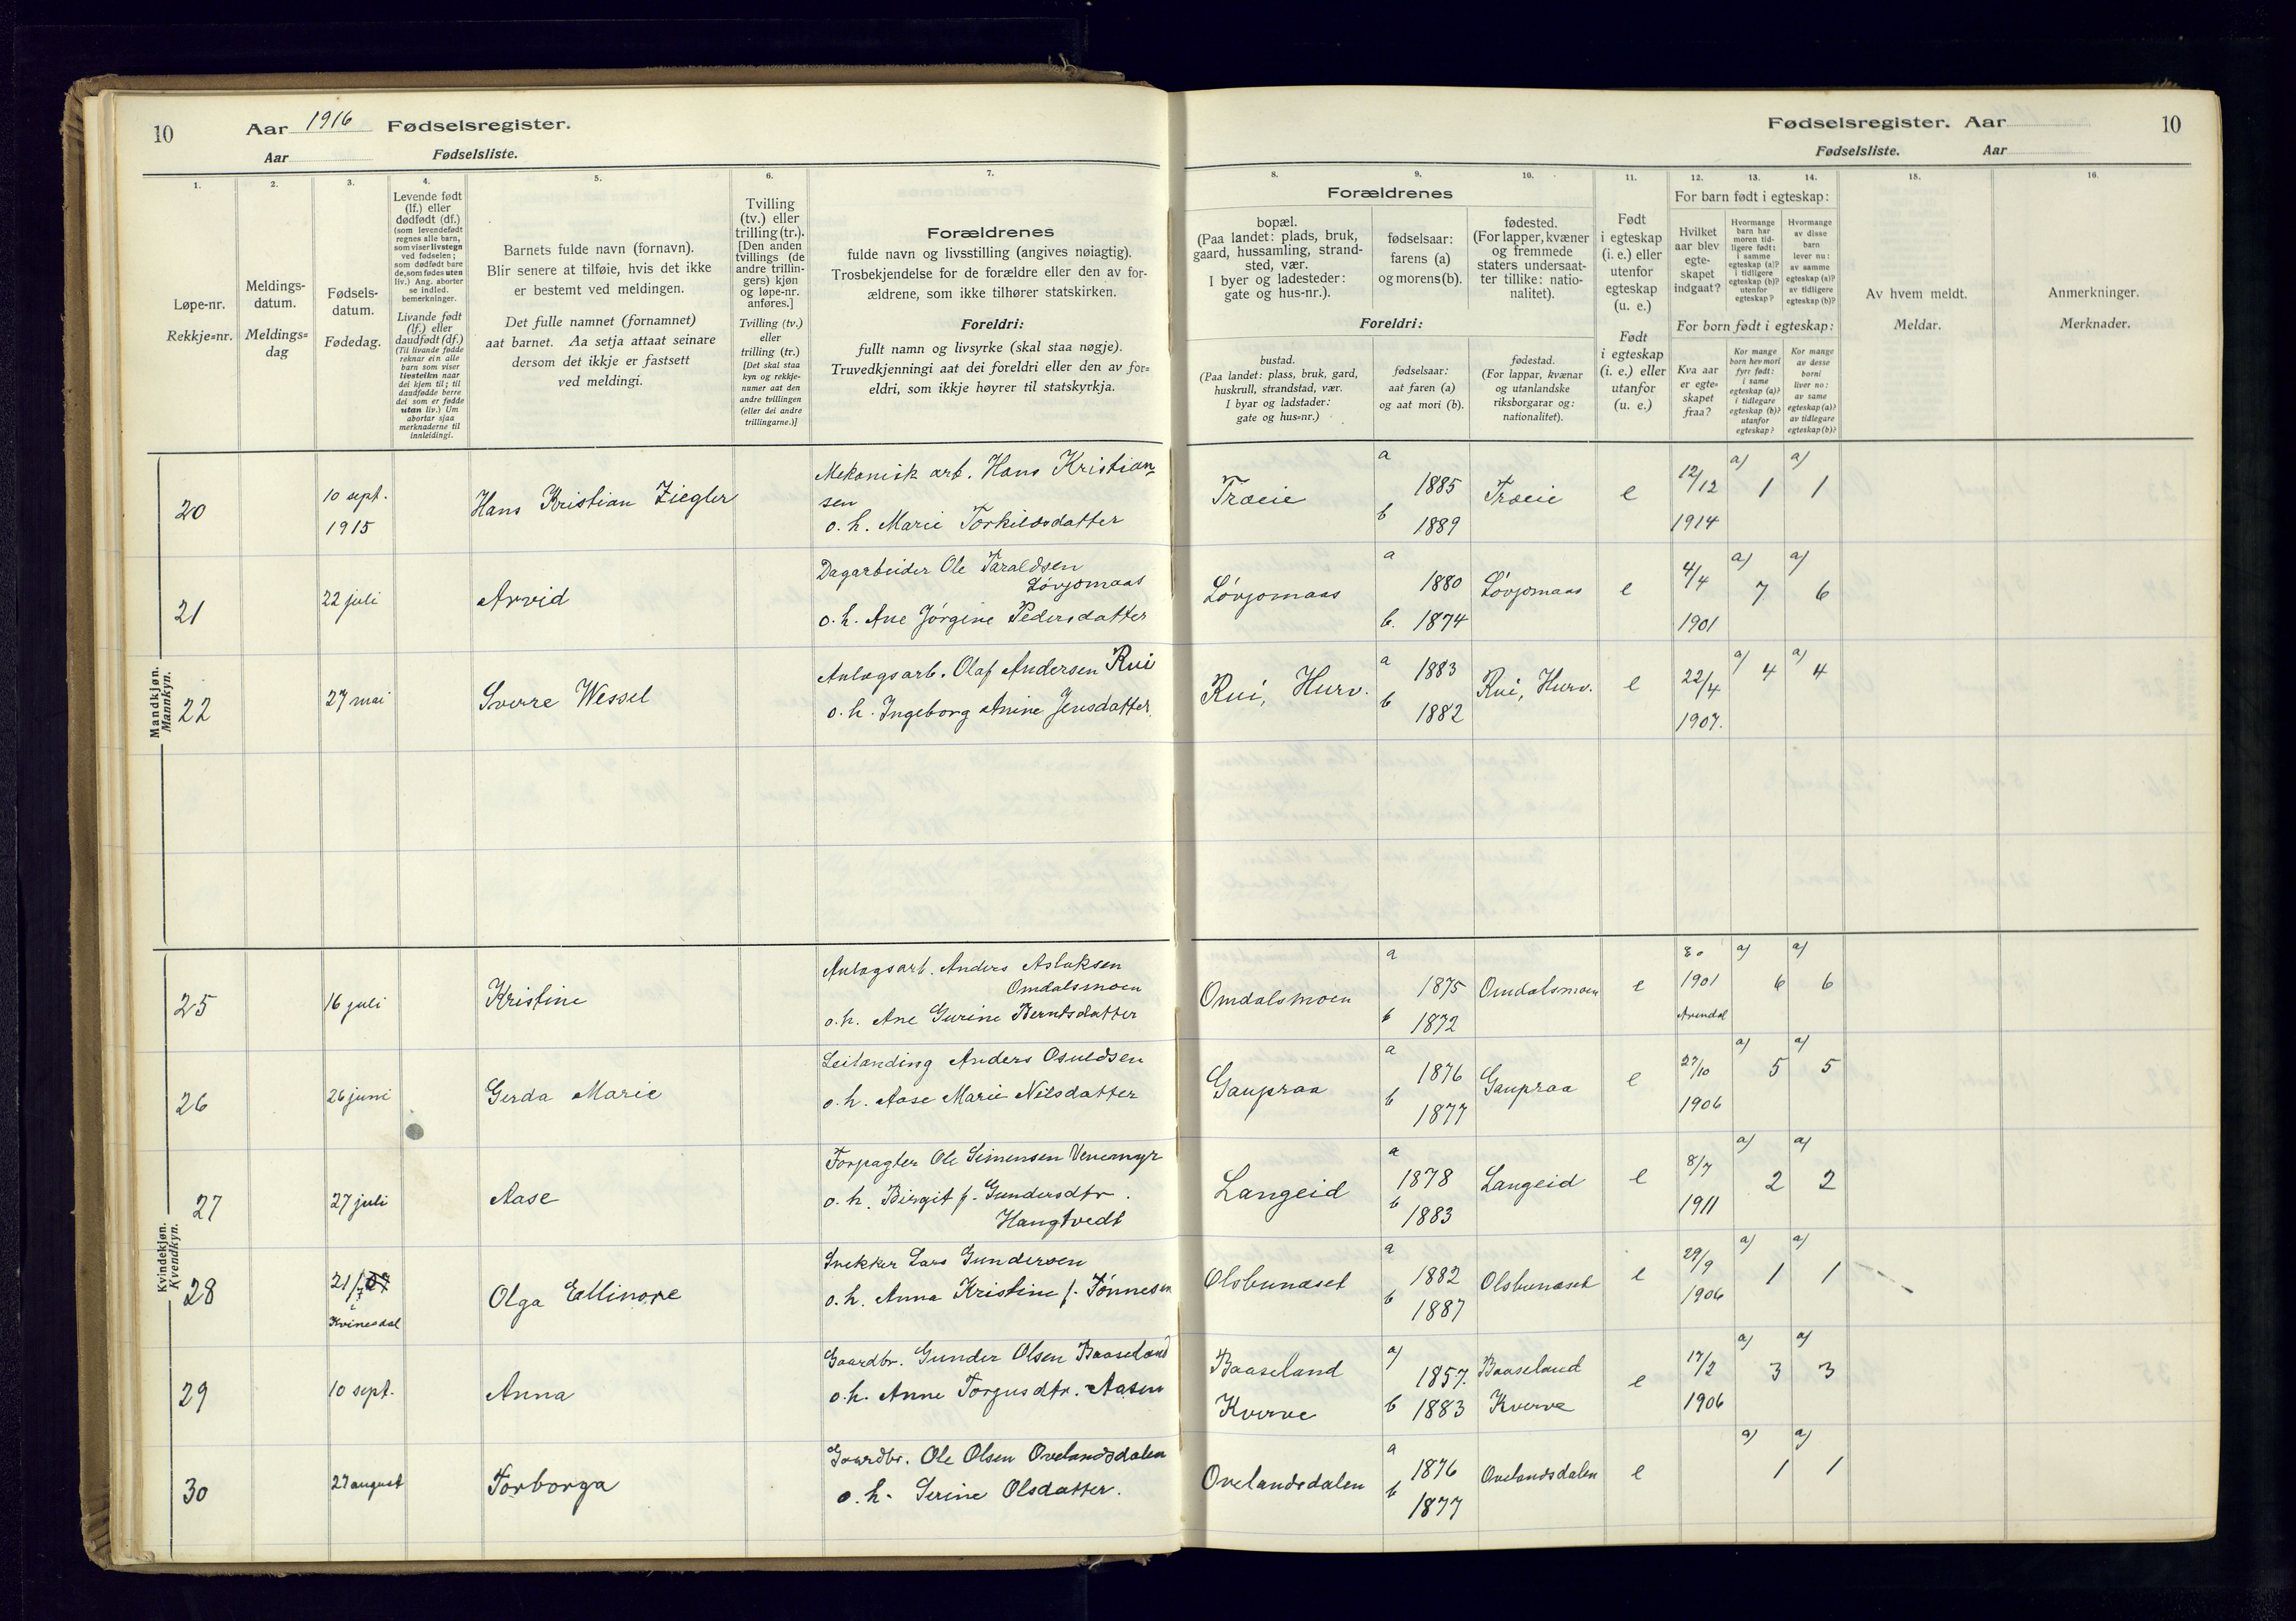 10
Aar 1916 Fødselsregister.
Aar Fødselsliste.
Fødselsregister. Aar
10
Fødselsliste. Aar
1.
Løpe-nr.
Rekkje=nr.
2.
Meldings-
datum.
Meldings=
dag
3.
Fødsels-
datum.
Fødedag.
4.
Levende født
(lf.) eller
dødfødt (df.)
(som levendefødt
regnes alle barn,
som viser livstegn
ved fødselen;
som dødfødt bare
de, som fødes uten
liv.) Ang. aborter
se indled.
bemerkninger.
Livande født
(lf.) eller
daudfødt (df.)
(Til livande fødde
reknar ein alle
barn som viser
livsteikn naar
dei kjem til; til
daudfødde berre
dei som er fødde
utan liv.) Um
abortar sjaa
merknaderne til
innleidingi.
5.
Barnets fulde navn (fornavn).
Blir senere at tilføie, hvis det ikke
er bestemt ved meldingen.
Det fulle namnet (fornamnet)
aat barnet. Aa setja attaat seinare
dersom det ikkje er fastsett
ved meldingi.
6.
Tvilling
(tv.) eller
trilling (tr.).
[Den anden
tvillings (de
andre trillin-
gers) kjøn
og løpe-nr.
anføres.]
Tvilling (tv.)
eller
trilling (tr.)
[Det skal staa
kyn og rekkje-
numer aat den
andre tvillingen
(eller dei andre
trillingarne.)]
7.
Forældrenes
fulde navn og livsstilling (angives nøiagtig).
Trosbekjendelse for de forældre eller den av for-
ældrene, som ikke tilhører statskirken.
Foreldri:
fullt namn og livsyrke (skal staa nøgje).
Truvedkjenningi aat dei foreldri eller den av for=
eldri, som ikkje høyrer til statskyrkja.
8.
Forældrenes
bopæl.
(Paa landet: plads, bruk,
gaard, hussamling, strand-
sted, vær.
I byer og ladesteder:
gate og hus-nr.).
Foreldri:
bustad.
(Paa landet: plass, bruk, gard,
huskrull, strandstad, vær.
I byar og ladstader:
gate og hus=nr.)
9.
fødselsaar:
farens (a)
og morens (b).
fødselsaar:
aat faren (a)
og aat mori (b).
10.
fødested.
(For lapper, kvæner
og fremmede
staters undersaat-
ter tillike: natio-
nalitet).
fødestad.
(For lappar, kvænar
og utanlandske
riksborgarar og:
nationalitet).
11.
Født
i egteskap
(i. e.) eller
utenfor
egteskap
(u. e.)
Født
i egteskap
(i. e.) eller
utanfor
(u. e.)
12. 13. 14.
For barn født i egteskap:
Hvilket
aar blev
egte-
skapet
indgaat?
Hvormange
barn har
moren tid-
ligere født:
i samme
egteskap (a)?
i tidligere
egteskap (b)?
utenfor
egteskap?
Hvormange
av disse
barn
lever nu:
av samme
egteskap (a)?
av tidligere
egteskap (b)?
For born født i egteskap:
Kva aar
er egte=
skapet
fraa?
Kor mange
born hev mori
fyrr født:
i same
egteskap (a)?
i tidlegare
egteskap (b)?
utanfor
egteskap?
Kor mange
av desse
borni
liver no:
av same
egteskap (a)?
av tidlegare
egteskap (b)?
15.
Av hvem meldt.
Meldar.
16.
Anmerkninger.
Merknader.
Mandkjøn.
Mannkyn.
20 10 sept. 1915 Hans Kristian Ziegler
Mekanisk arb. Hans Kristian-
sen
o. h. Marie Torkildsdatter
Træeie a 1885 b 1889 Træeie e 12/12 1914 a) 1 a) 1
21 22 juli Arvid
Dagarbeider Ole Taraldsen
Løvjomaas
o. h. Ane Jørgine Pedersdatter
Løvjomaas a 1880 b. 1874 Løvjomaas e 4/4 1901 a) 7 a) 6
22 27 mai Sverre Wessel
Anlogsarb. Olaf Andersen Rui
o. h. Ingeborg Anine Jensdatter
Rui, Hurv. a 1883 b 1882 Rui, Hurv. e 22/4 1907. a) 4 a) 4
Kvindekjøn.
Kvendkyn.
25 16 juli Kristine
Anlogsarb. Anders Aslaksen
Omdalsmoen
o. h. Ane Gurine Berntsdatter
Omdalsmoen a 1875 b 1872 Omdalsmoen e 1901 Arendal a) 6 a) 6
26 26 juni Gerda Marie
Leilanding Anders Osuldsen
o. h. Aase Marie Nilsdatter
Gaupraa a 1876 b 1877 Gaupraa e 27/10 1906 a) 5 a) 5
27 27 juli Aase
Forpagter Ole Simensen Venemyr
o. h. Birgit f. Gundersdtr.
Haugtvedt
Langeid a 1878 b 1883 Langeid e 8/7 1911 a) 2 a) 2
28 21/7 i Kvinesdal Olga Ellinore
Snekker Lars Gundersen
o. h. Anna Kristine f. Tønnesen
Olsbundset a 1882 b 1887 Olsbundset e 29/9 1906 a) 1 a) 1
29 10 sept. Anna
Gaardbr. Gunder Olsen Baaseland
o. h. Anne Torgusdtr. Aasen
Baaseland
Kverve a) 1857. b 1883 Baaseland
Kverve e 17/2 1906 a) 3 a) 3
30 27 august Torborga
Gaardbr. Ole Olsen Ovelandsdalen
o. h. Serine Olsdatter.
Ovelandsdalen a 1876 b 1877 Ovelandsdalen e a) 1 a) 1